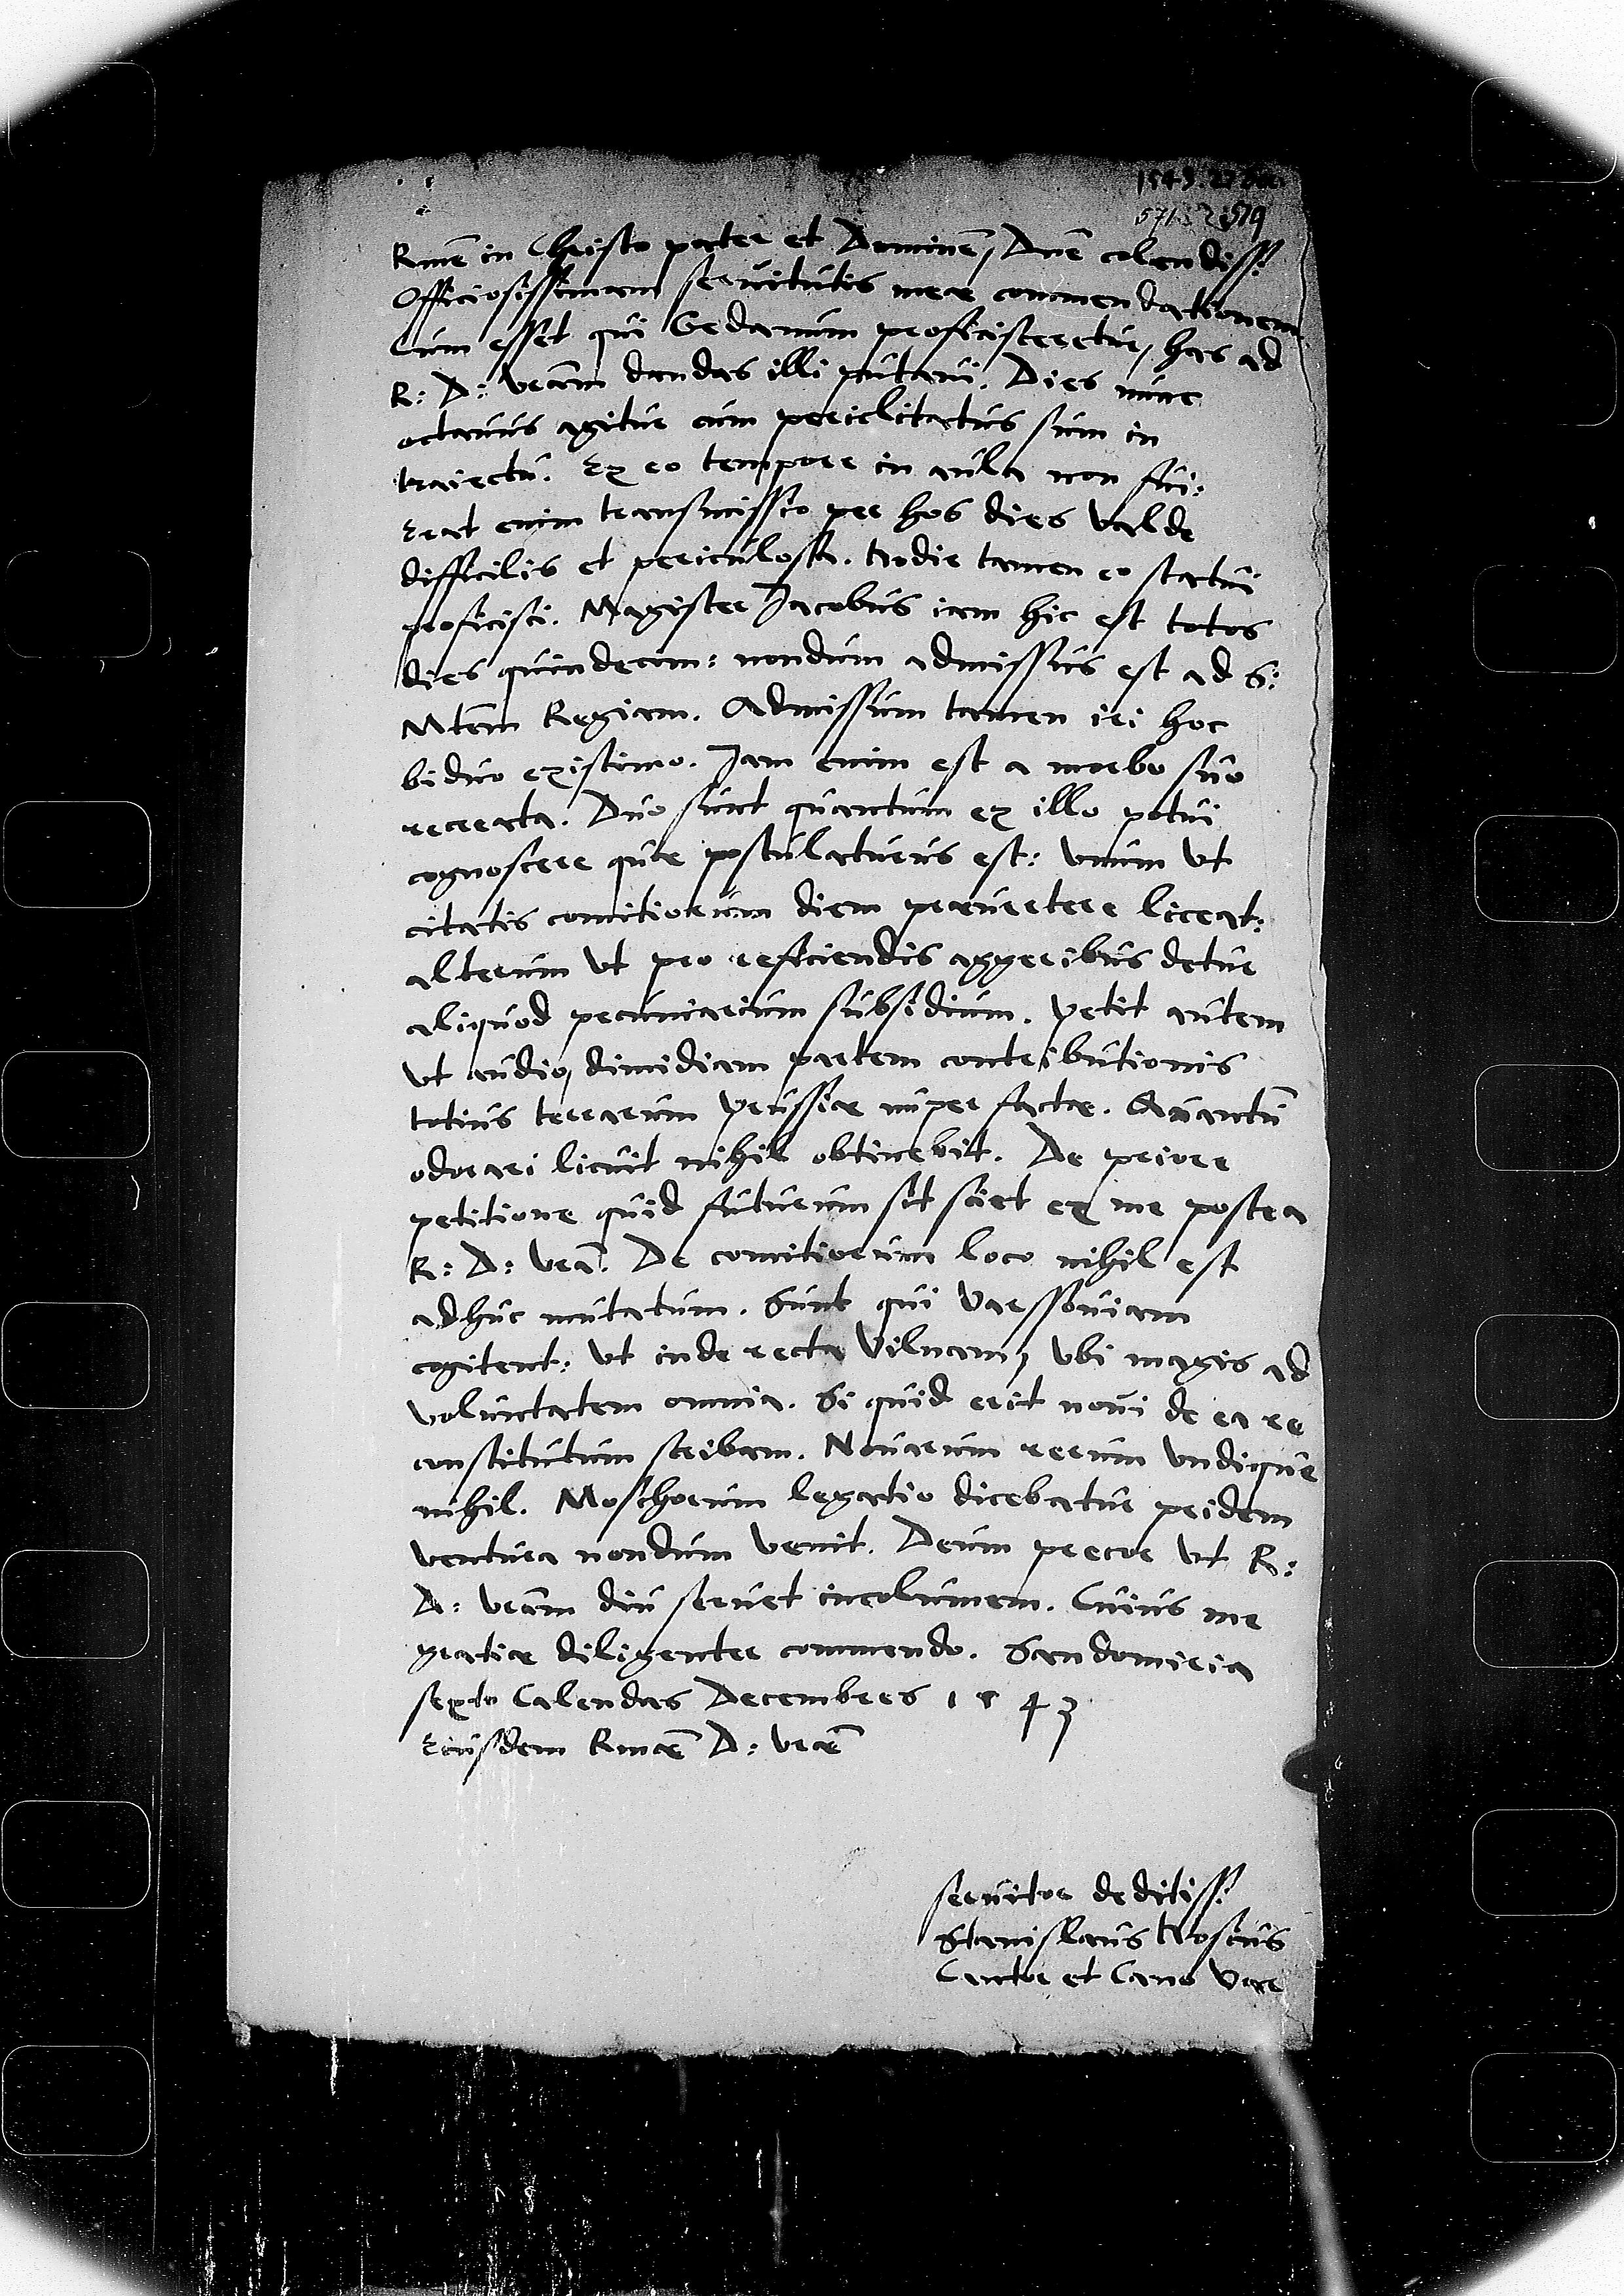 Rme in Christo pater et Domine, Dne colendiss:
Officiosissimam servitutis meae commendationem
Cum esset qui Gedanum proficisceretur, has ad
R: D: vram dandas illi putavi. Dies nunc
octavus agitur cum periclitatus sum in
traiectu. Ex eo tempore in aula non fui:
Erat enim transmissio per hos dies valde
difficilis et periculosa. Hodie tamen eo statui
proficisci. Magister Jacobus iam hic est totos
dies quindecim: nondum admissus est ad S:
Mtem Regiam. Admissum tamen iri hoc
biduo existimo. Jam enim est a morbo suo
recreata. Duo sunt quantum ex illo potui
cognoscere quae postulaturus est: unum ut
citatis comitiorum diem praevertere liceat:
alterum ut pro reficiendis aggeribus detur
aliquod pecuniarium subsidium. Petit autem
ut audio, dimidiam partem contributionis
totius terrarum Prussiae nuper factae. Quantu
odorari licuit nihil obtinebit. De priore
petitione quid futurum sit sciet ex me postea
R: D: vra. De comitiorum loco nihil est
adhuc mutatum. Sunt qui Varssoviam
cogitent: ut inde recta Vilnam, ubi magis ad
voluntatem omnia. Si quid erit novi de ea re
constitutum scribam. Novarum rerum undique
nihil. Moschorum legatio dicebatur pridem
ventura nondum venit. Deum precor ut R:
D: vram diu servet incolumem. Cuius me
gratiae diligenter commendo. Sandomiria
sexto Calendas Decembres 1543
Eiusdem Rmae D: vrae
servitor deditiss:
Stanislaus Hosius
Cantor et Cano Var